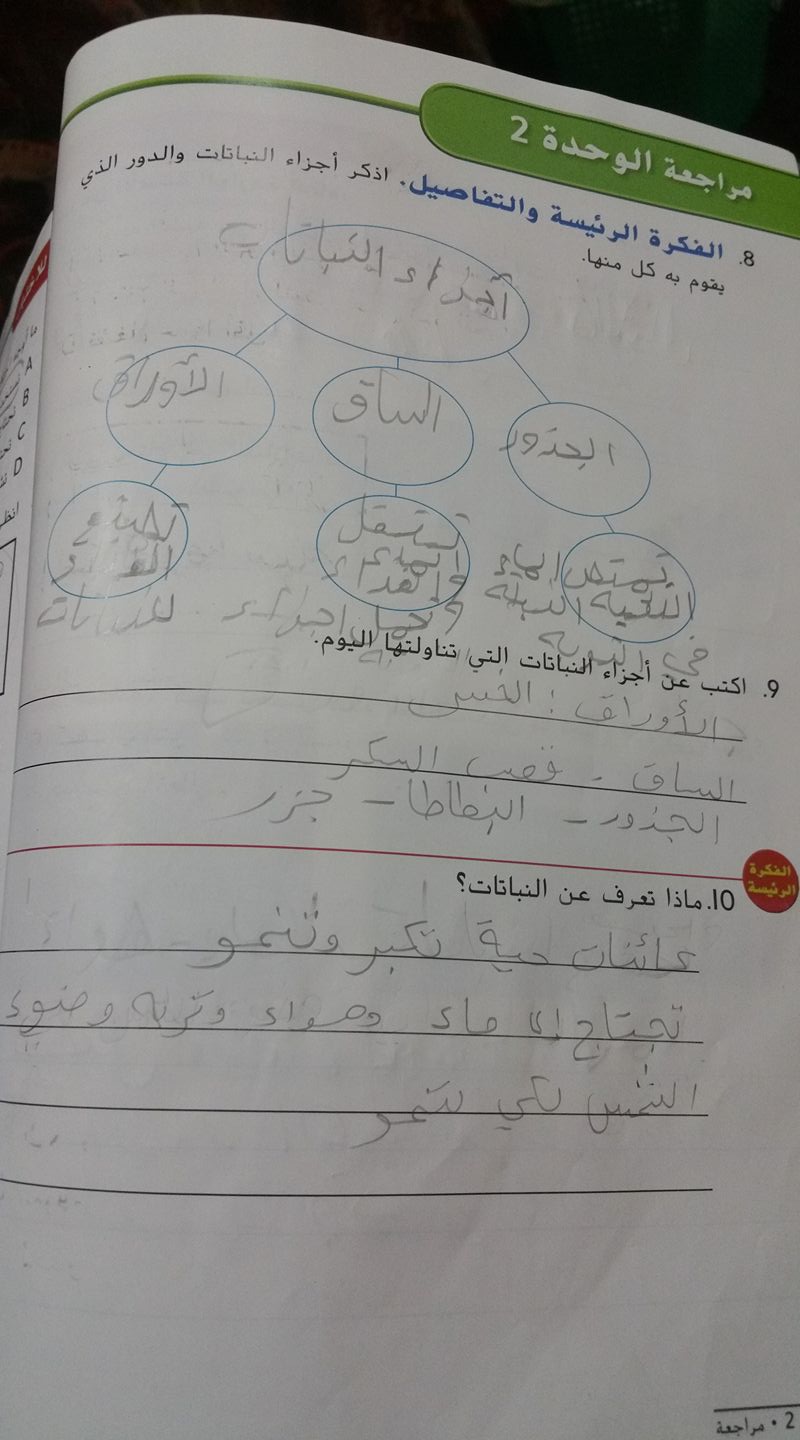 مراجعة الوحدة 2
8. الفكرة الرئيسة والتفاصيل. اذكر أجزاء النباتات والدور الذي
يقوم به كل منها.
أجزاء النباتات
الجذور
الساق
الأوراق
تمتص الماء
في التربة
تصنع
للنباتات
9. اكتب عن أجزاء النباتات التي تناولتها اليوم.
الأوراق : الخس
الساق - قصب السكر
الجذور - البطاطا - جزر
الفكرة
الرئيسة
10. ماذا تعرف عن النباتات؟
كائنات حية تكبر وتنمو
تحتاج إلى ماء وهواء وتربه وضوء
الشمس لكي تنمو
2 • مراجعة
A
B
C
D